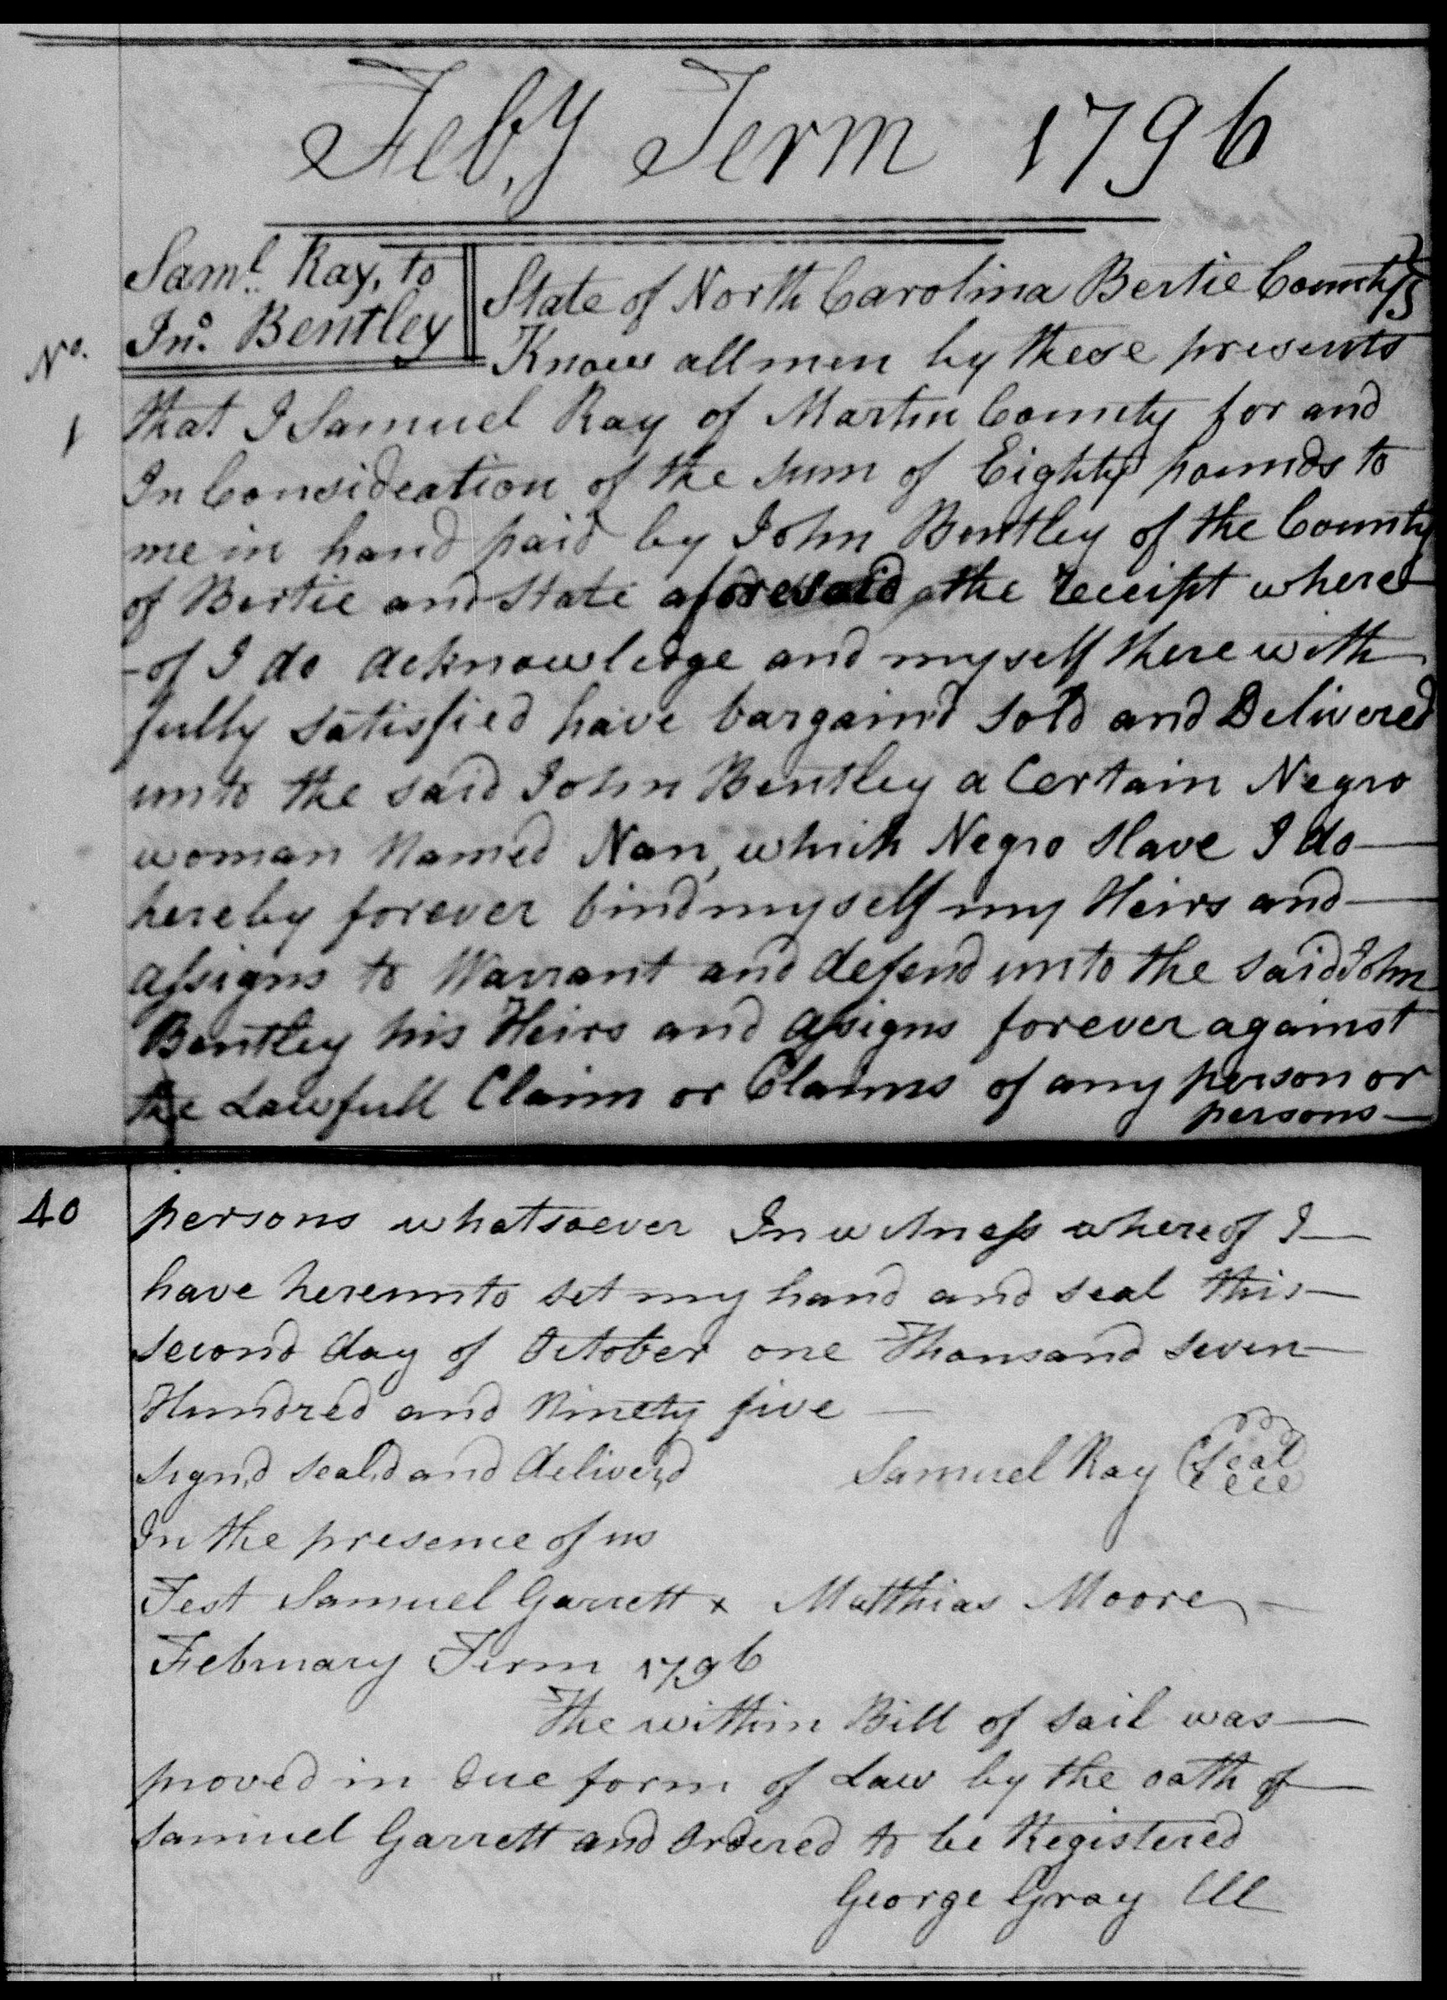 Feb,y Term 1796
Saml. Ray, to
Jno. Bentley
No.
1
State of North Carolina Bertie County
Know all men by these presents
that I Samuel Ray of Martin County for and
In Consideation of the sum of Eighty pounds to
me in hand paid by John Bentley of the County
of Bertie and State aforesaid the receipt where
-of I do acknowledge and myself there with
fully satisfied have bargaind sold and Delivered
unto the said John Bentley a Certain Negro
woman Named Nan, which Negro slave I do
hereby forever bind myself my Heirs and
assigns to Warrant and defend unto the said John
Bentley his Heirs and assigns forever against
the Lawfull Claim or Claims of any person or
persons
40
persons whatsoever In witness whereof I
have hereunto set my hand and seal this
second day of October one Thousand seven
Hundred and Ninety five
sign,d seal,d and deliver,d
Samuel Ray Seal
In the presence of us
Test Samuel Garrett x Matthias Moore
February Term 1796
The within Bill of sail was
proved in due form of Law by the oath of
Samuel Garrett and ordered to be Registered
George Gray Cll